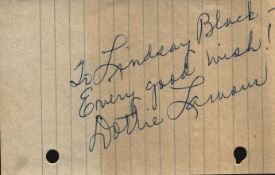 To Lindsay Black -
Every good wish!
Dottie Lamour